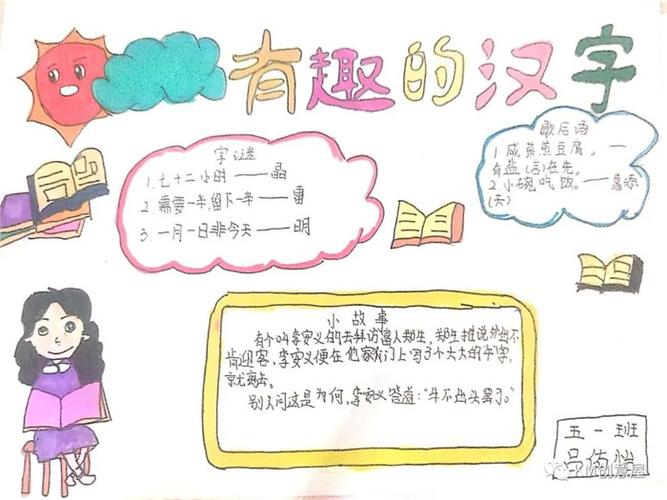 有趣的汉字
字谜
1.七十二小时——晶
2.需要一半,留下一半——雷
3.一月一日非今天——明
歇后语
1 咸菜煎豆腐,——
有盐(言)在先。
2.小碗吃饭。——靠添
(天)
小故事
有个叫李安义的去拜访富人郑生,郑生推说外出不
肯迎客,李安义便在他家门上写了个大大的午字,
就离去。
别人问这是为何,李安义答道:“牛不出头罢了。”
五一班
吕佑怡
TM创意屋